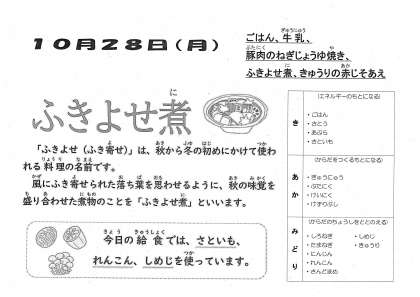 10月28日(月)
ごはん、牛乳、
豚肉のねぎじょうゆ焼き、
ふきよせ煮、きゅうりの赤じそあえ
ふきよせ煮
「ふきよせ(ふき寄せ)」は、秋から冬の初めにかけて使わ
れる料理の名前です。
風にふき寄せられた落ち葉を思わせるように、秋の味覚を
盛り合わせた煮物のことを「ふきよせ煮」といいます。
今日の給食では、さといも、
れんこん、しめじを使っています。
き
(エネルギーのもとになる)
・ごはん
・さとう
・あぶら
・さといも
あか
(からだをつくるもとになる)
・ぎゅうにゅう
・ぶたにく
・けいにく
・けずりぶし
みどり
(からだのちょうしをととのえる)
・しろねぎ ・しめじ
・たまねぎ ・きゅうり
・にんじん
・れんこん
・さんどまめ